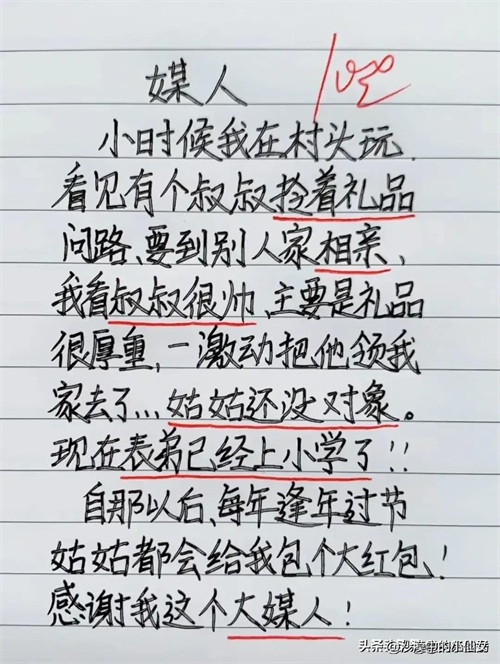 媒人
100
小时候我在村头玩,
看见有个叔叔拎着礼品
问路、要到别人家相亲,
我看叔叔很帅、主要是礼品
很厚重,一激动把他领我
家去了...姑姑还没对象。
现在表弟已经上小学了!!
自那以后、每年逢年过节
姑姑都会给我包个大红包!
感谢我这个大媒人!